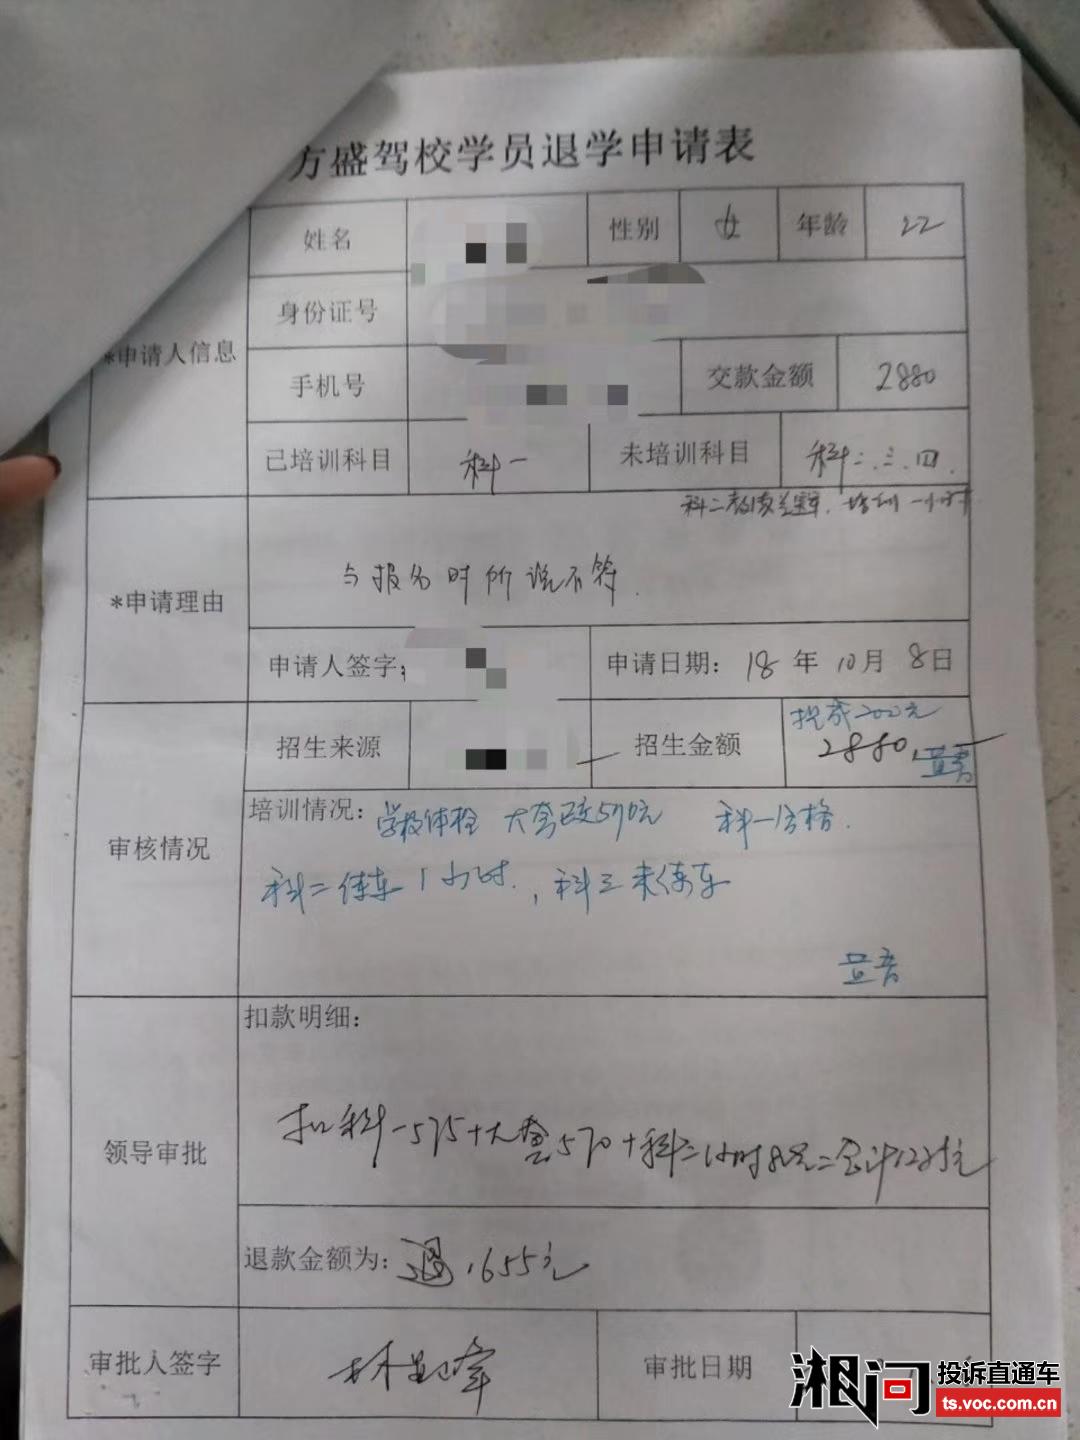 方盛驾校学员退学申请表
*申请人信息
姓名
性别 女 年龄 22
身份证号
手机号
交款金额 2880
已培训科目 科一
未培训科目 科二.三.四.
*申请理由
培训一小时
与报名时所说不符.
申请人签字:
申请日期: 18年10月8日
审核情况
招生来源
招生金额
2880
培训情况: 学校体检 大套已交570元 科一合格.
科二练车1小时. , 科三未练车
领导审批
扣款明细:
扣科一575+大套570+科二1小时80元=合计1225元
退款金额为: 退1655元
审批人签字
审批日期
湘问 投诉直通车
ts.voc.com.cn